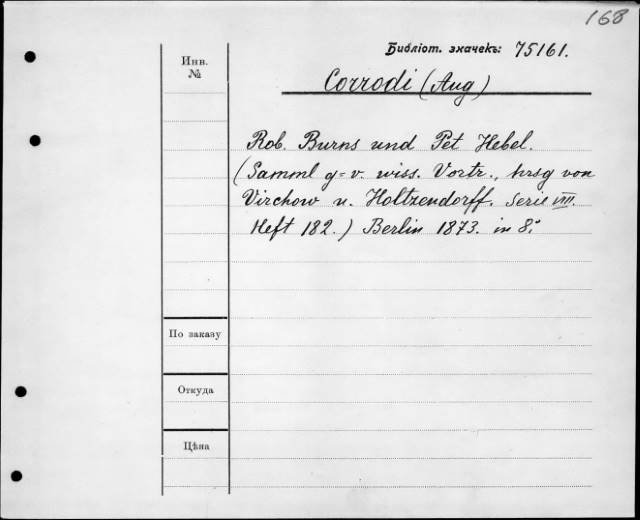 168
Библіот. значекъ: 75161.
Инв.
№
Corrodi (Aug)
Rob. Burns und Pet Hebel.
(Samml g=v. wiss. Vortr., hrsg von
Virchow u. Holtzendorff. Serie VIII.
Heft 182.) Berlin 1873. in 8.°
По заказу
Откуда
Цѣна